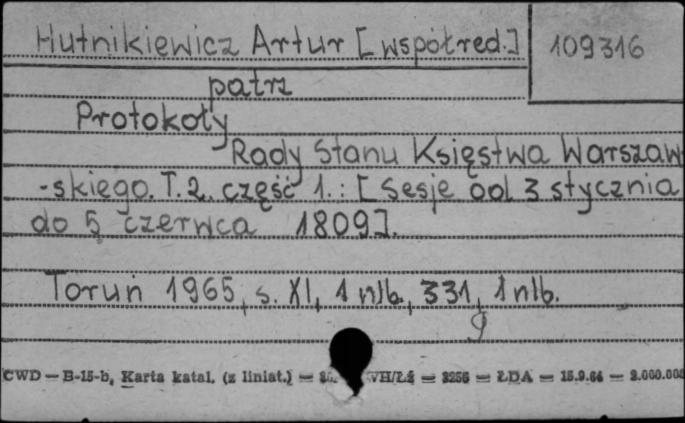 Hutnikiewicz Artur [współred.]
109316
patrz
Protokoły
Rady Stanu Księstwa Warszaw
-skiego. T. 2. część 1.: [Sesje od 3 stycznia
do 5 czerwca 1809].
Toruń 1965, s. XI, 1 nlb., 331, 1 nlb.
CWD — B-15-b, Karta katal. (z liniat.) — WH/Łż — 3256 — ŁDA — 15.9.64 — 2.000.000